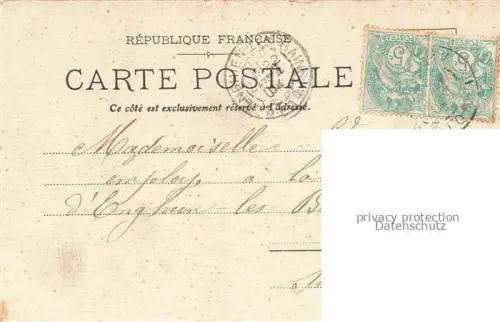 RÉPUBLIQUE FRANÇAISE
CARTE POSTALE
Ce côté est exclusivement réservé à l'adresse.
Mademoiselle
employ à la
d'Enghien-les B
5
privacy protection
Datenschutz